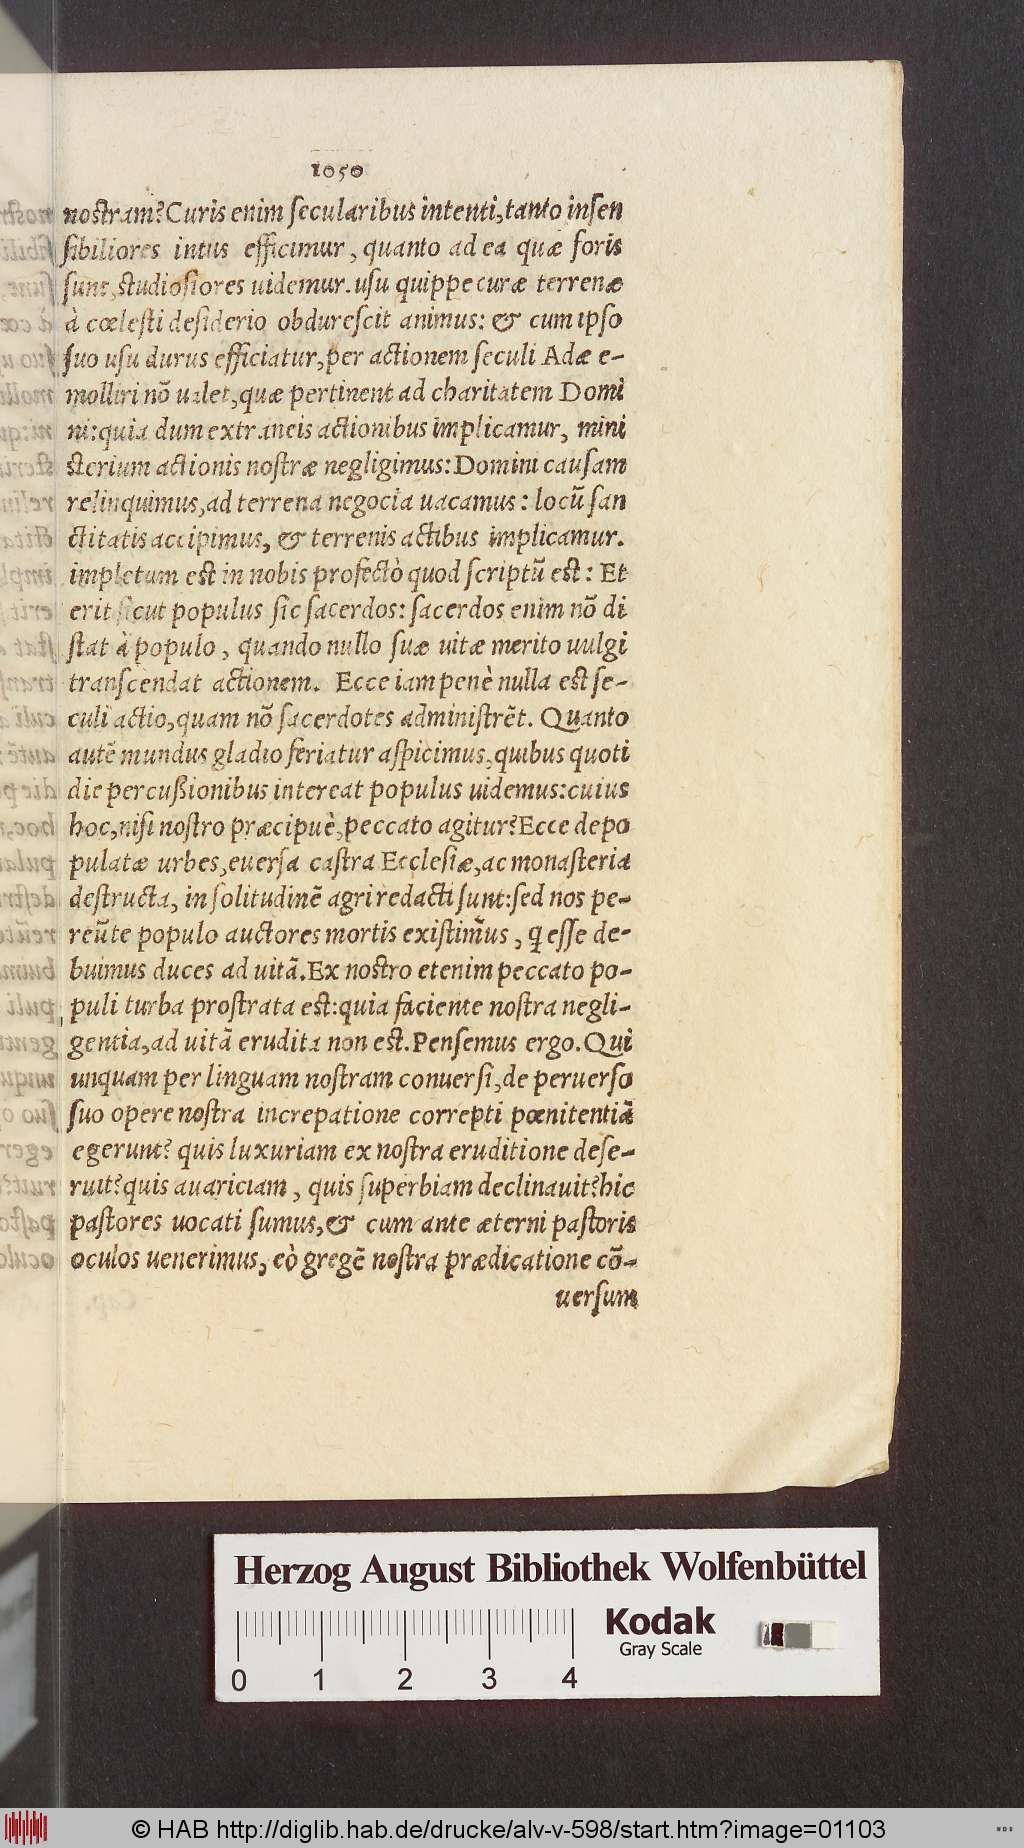 1050
nostram? Curis enim ſecularibus intenti, tanto inſen
ſibiliores intus efficimur, quanto ad ea quæ foris
ſunt, ſtudioſiores uidemur. uſu quippe curæ terrenæ
à cœleſti deſiderio obdureſcit animus: & cum ipſo
ſuo uſu durus efficiatur, per actionem ſeculi Adæ e-
molliri nō ualet, quæ pertinent ad charitatem Domi
ni: quia dum extraneis actionibus implicamur, mini
ſterium actionis noſtræ negligimus: Domini cauſam
relinquimus, ad terrena negocia uacamus: locū ſan
ctitatis accipimus, & terrenis actibus implicamur.
impletum eſt in nobis profectò quod ſcriptū eſt: Et
erit ſicut populus ſic ſacerdos: ſacerdos enim nō di
ſtat à populo, quando nullo ſuæ uitæ merito uulgi
tranſcendat actionem. Ecce iam penè nulla eſt ſe-
culi actio, quam nō ſacerdotes adminiſtrēt. Quanto
autē mundus gladio feriatur aſpicimus, quibus quoti
die percußionibus intereat populus uidemus: cuius
hoc, niſi noſtro præcipuè, peccato agitur? Ecce depo
pulatæ urbes, euerſa caſtra Eccleſiæ, ac monaſteria
deſtructa, in ſolitudinē agri redacti ſunt: ſed nos pe-
reūte populo auctores mortis exiſtim̄us, q̄ eſſe de-
buimus duces ad uitā. Ex noſtro etenim peccato po-
puli turba proſtrata eſt: quia faciente noſtra negli-
gentia, ad uitā erudita non eſt. Penſemus ergo. Qui
unquam per linguam noſtram conuerſi, de peruerſo
ſuo opere noſtra increpatione correpti pœnitentiā
egerunt? quis luxuriam ex noſtra eruditione deſe-
ruit? quis auariciam, quis ſuperbiam declinauit? hic
paſtores uocati ſumus, & cum ante æterni paſtoris
oculos uenerimus, eò gregē noſtra prædicatione cō-
uerſum
Herzog August Bibliothek Wolfenbüttel
Kodak
Gray Scale
0 1 2 3 4
© HAB http://diglib.hab.de/drucke/alv-v-598/start.htm?image=01103